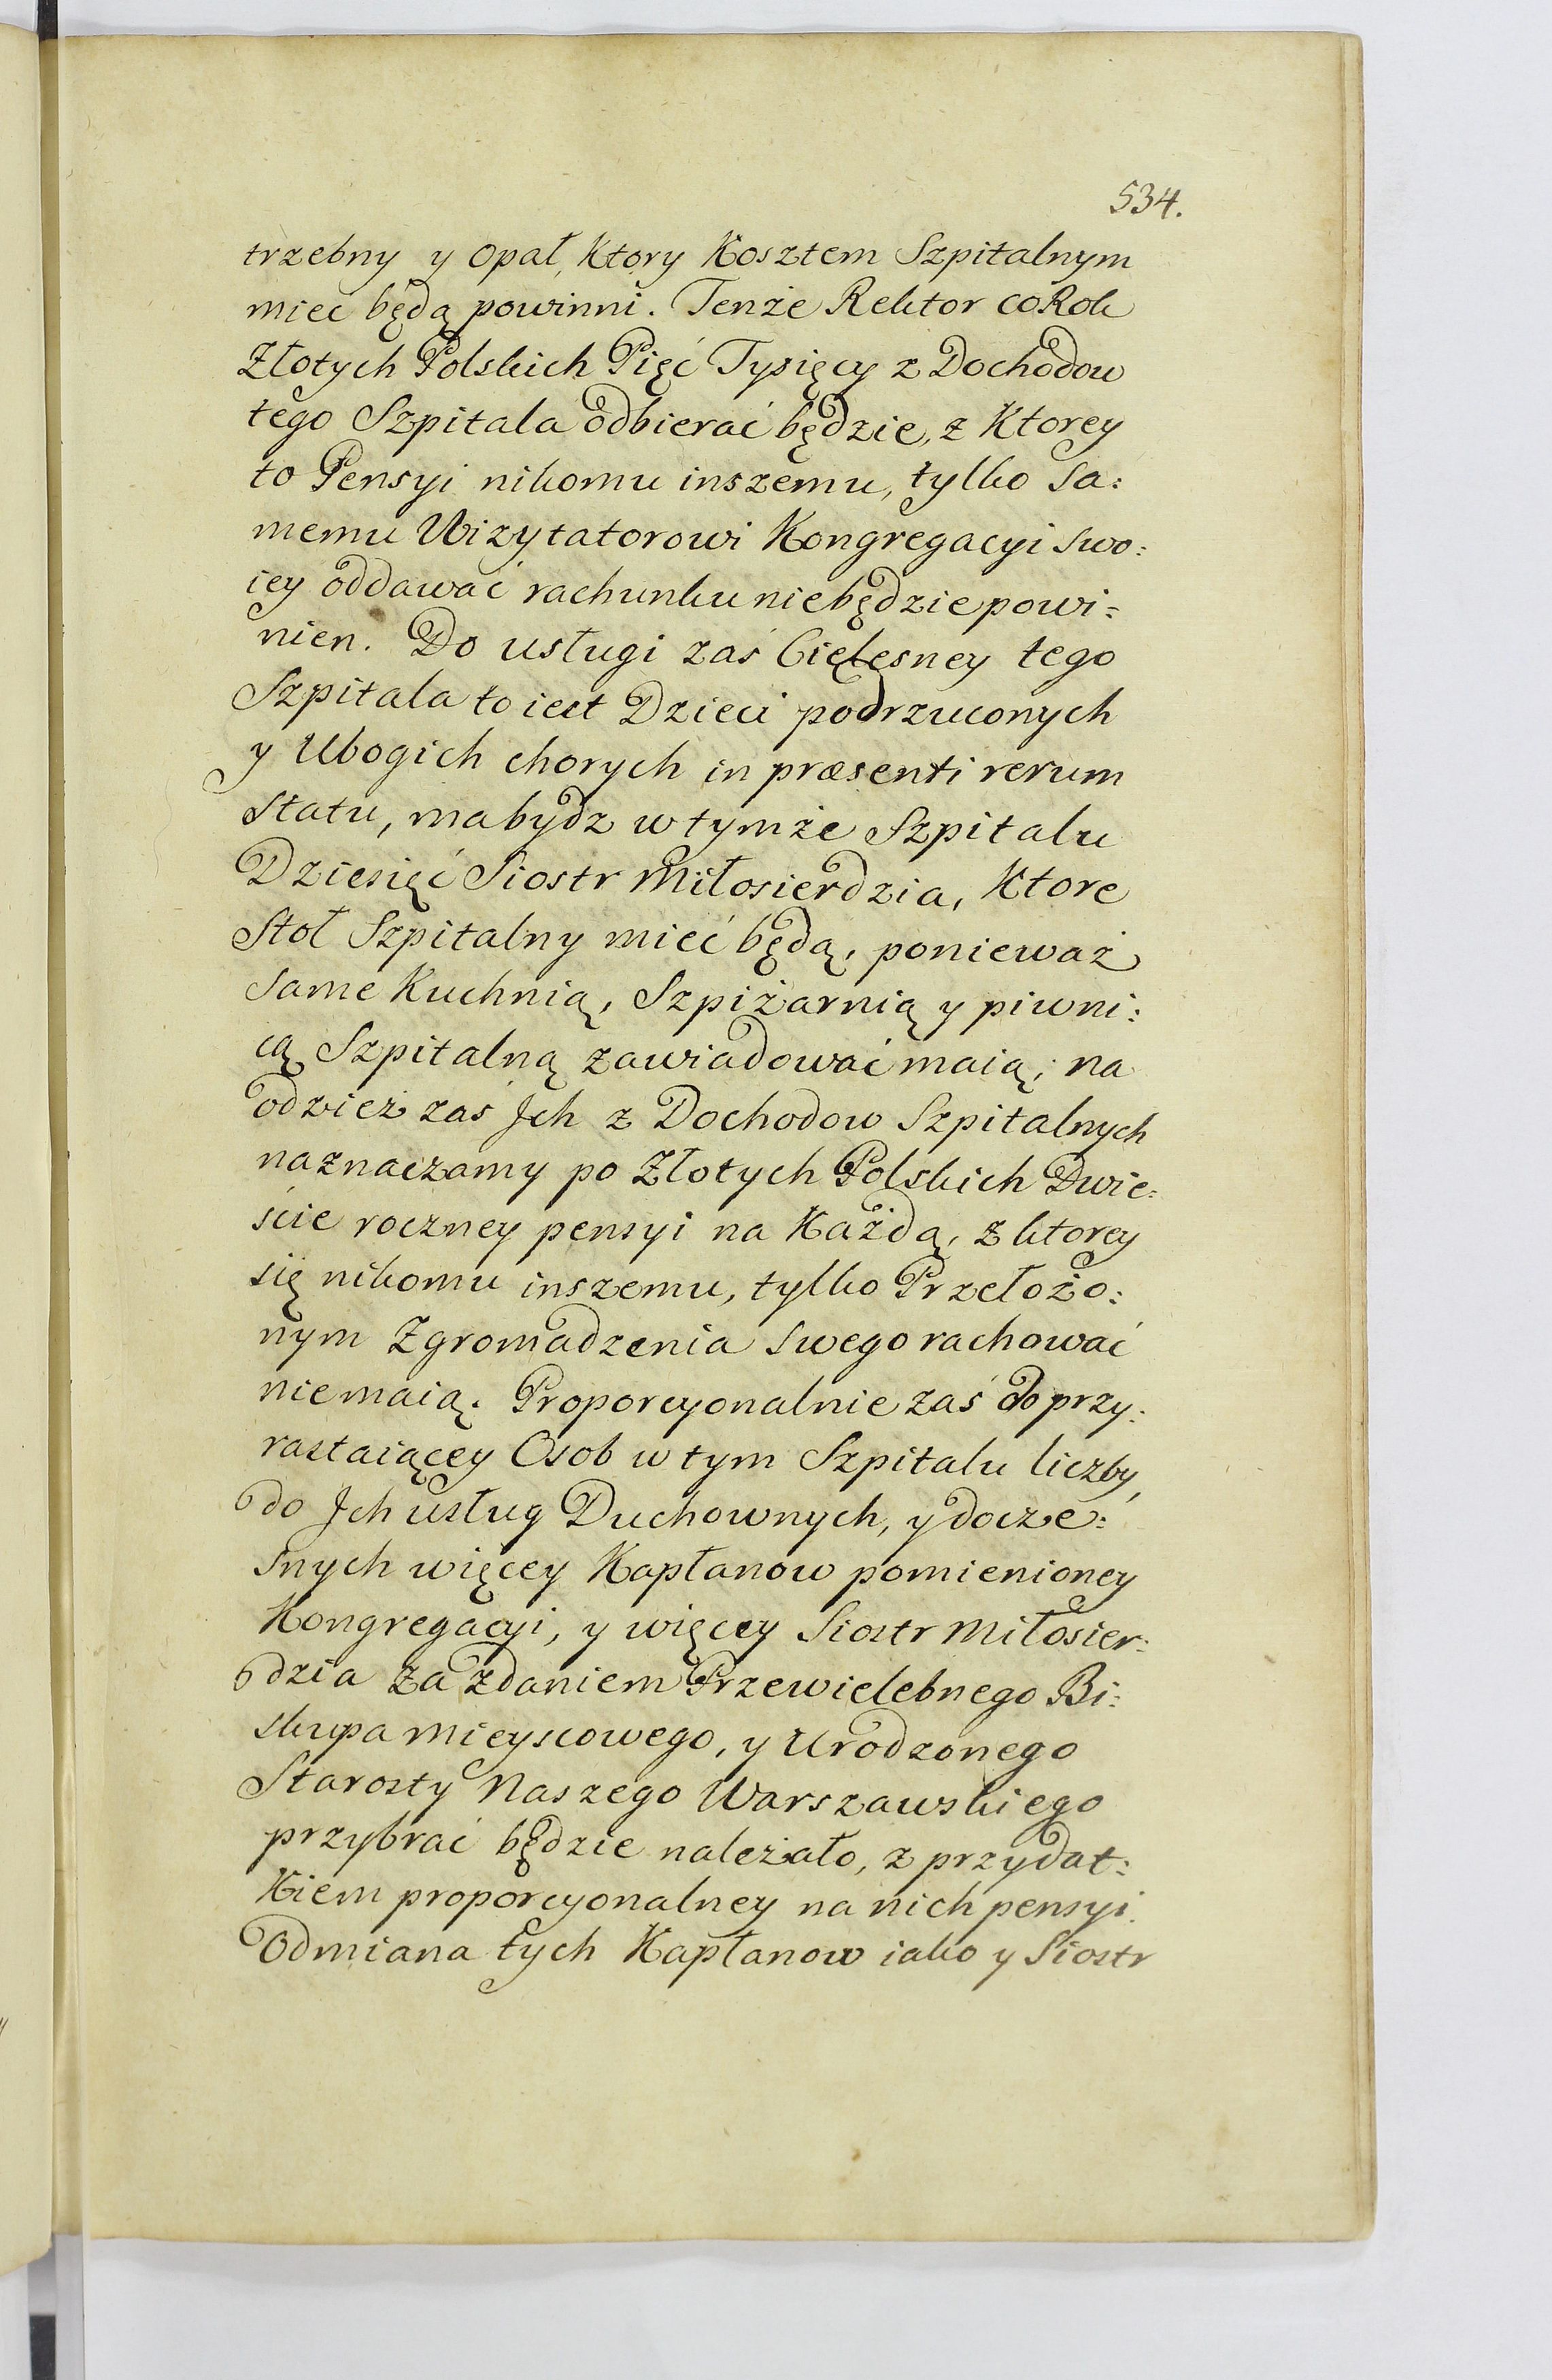 534.
trzebny y Opał, Ktory Kosztem Szpitalnym
miec będą powinni. Tenże Rektor co Rok
Złotych Polskich Pięć Tysięcy z Dochodow
tego Szpitala odbierać będzie, z Ktorey
to Pensyi nikomu inszemu, tylko Sa:
memu Wizytatorowi Kongregacyi Swo:
iey oddawać rachunku niebędzie powi:
nien. Do usługi zaś Cielesney tego
Szpitala to iest Dzieci podrzuconych
y Ubogich chorych in præsenti rerum
Statu, ma bydz w tymże Szpitalu
Dziesięć Siostr Miłosierdzia, Ktore
Stoł Szpitalny mieć będą, ponieważ
Same Kuchnią, Szpiżarnią y piwni:
cą Szpitalną zawiadować maią; na
odzież zaś Jch z Dochodow Szpitalnych
naznaczamy po Złotych Polskich Dwie:
ście roczney pensyi na Każdą, z ktorey
się nikomu inszemu, tylko Przełożo:
nym Zgromadzenia Swego rachować
niemaią. Proporcyonalnie zaś do przy:
rastaiącey Osob w tym Szpitalu liczby,
do Jch usług Duchownych, y docze:
snych więcey Kapłanow pomienioney
Kongregacyi, y więcey Siostr Miłosier:
dzia za zdaniem Przewielebnego Bi:
skupa Mieyscowego, y Urodzonego
Starosty Naszego Warszawskiego
przybrać będzie należało, z przydat:
Kiem proporcyonalney na nich pensyi.
Odmiana tych Kapłanow iako y Siostr